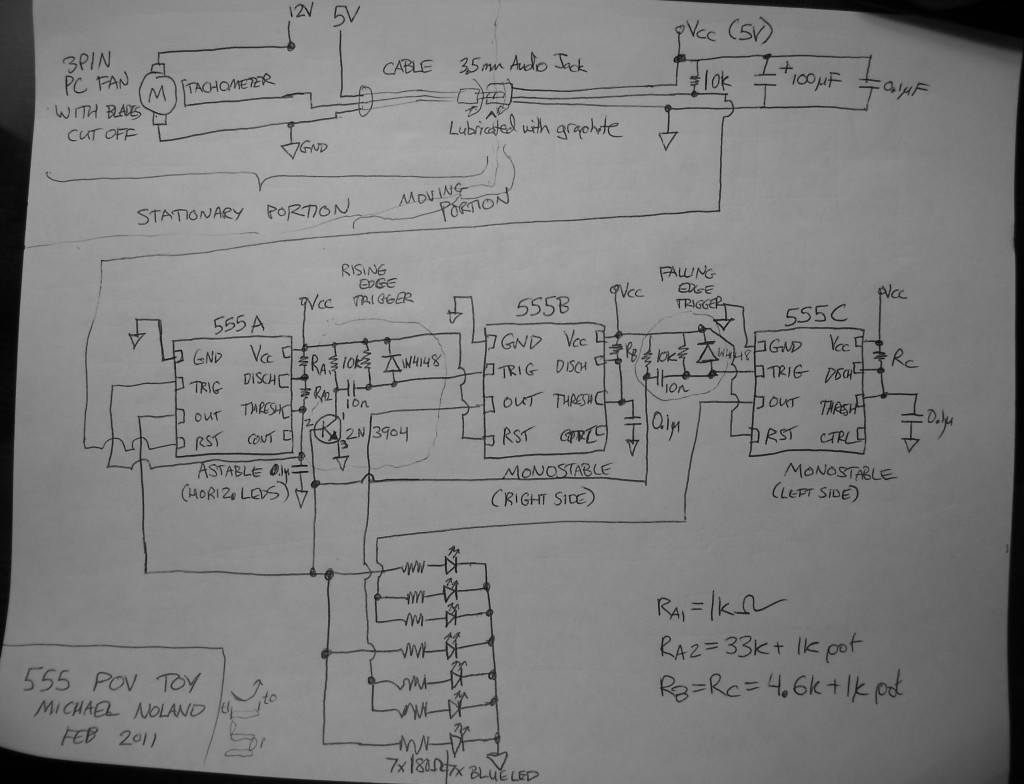 12V
5V
Vcc (5V)
3PIN
PC FAN
WITH BLADES
CUT OFF
M
TACHOMETER
CABLE
3.5mm Audio Jack
10k
+
100µF
0.1µF
GND
Lubricated with graphite
STATIONARY PORTION
MOVING
PORTION
RISING
EDGE
TRIGGER
FALLING
EDGE
TRIGGER
Vcc
Vcc
Vcc
555A
555B
555C
GND
Vcc
TRIG
DISCH
OUT
THRESH
RST
COUT
RA1
RA2
10k
1N4148
10n
1
2
3
2N3904
GND
Vcc
TRIG
DISCH
OUT
THRESH
RST
CTRL
RB
10k
1N4148
10n
0.1µ
GND
Vcc
TRIG
DISCH
OUT
THRESH
RST
CTRL
RC
0.1µ
ASTABLE
0.1µ
(HORIZ. LEDS)
MONOSTABLE
(RIGHT SIDE)
MONOSTABLE
(LEFT SIDE)
RA1 = 1kΩ
RA2 = 33k + 1k pot
RB = RC = 4.6k + 1k pot
555 POV TOY
MICHAEL NOLAND
FEB 2011
7x 180Ω
7x BLUE LED